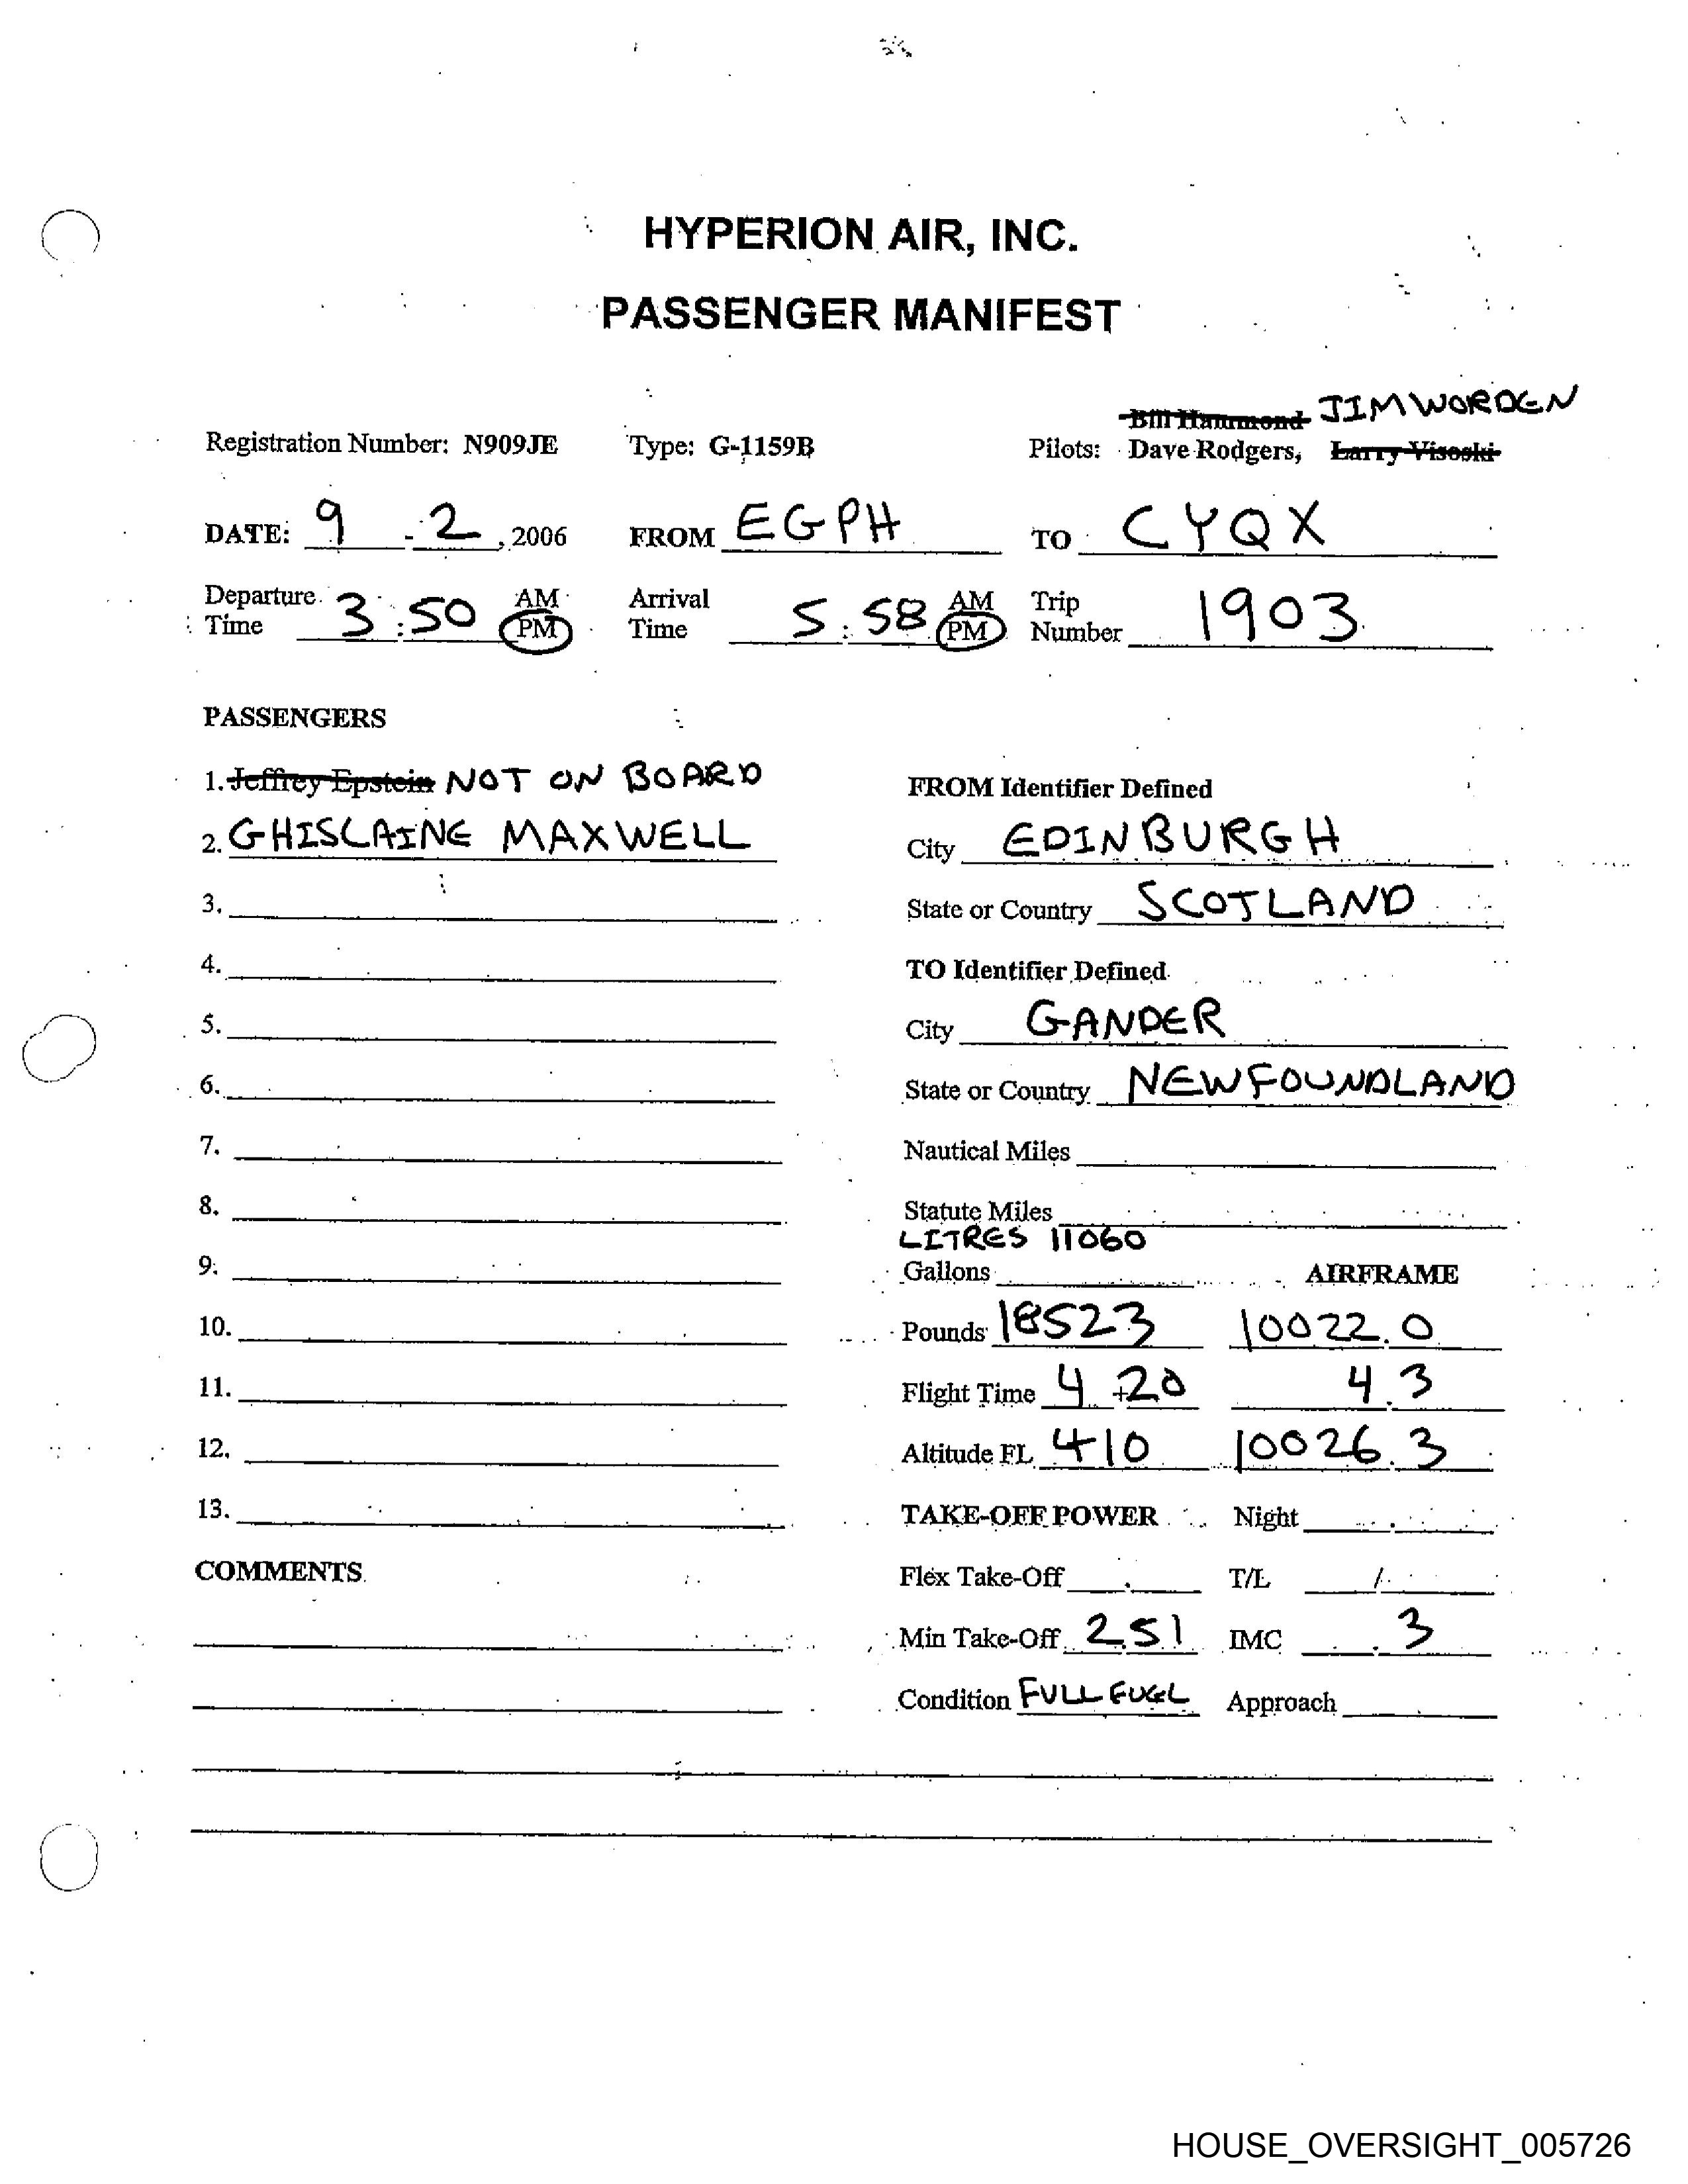 HYPERION AIR, INC.
PASSENGER MANIFEST
Bill Hammond JIM WORDEN
Registration Number: N909JE Type: G-1159B Pilots: Dave Rodgers, Larry Visoski
DATE: 9 - 2, 2006 FROM EGPH TO CYQX
Departure Time 3:50 AM PM Arrival Time 5:58 AM PM Trip Number 1903
PASSENGERS
1. Jeffrey Epstein NOT ON BOARD
2. GHISLAINE MAXWELL
3.
4.
5.
6.
7.
8.
9.
10.
11.
12.
13.
COMMENTS
FROM Identifier Defined
City EDINBURGH
State or Country SCOTLAND
TO Identifier Defined
City GANDER
State or Country NEWFOUNDLAND
Nautical Miles
Statute Miles
LITRES 11060
Gallons AIRFRAME
Pounds 18523 10022.0
Flight Time 4+20 4.3
Altitude FL 410 10026.3
TAKE-OFF POWER Night .
Flex Take-Off . T/L /
Min Take-Off 2.51 IMC .3
Condition FULL FUEL Approach
HOUSE_OVERSIGHT_005726